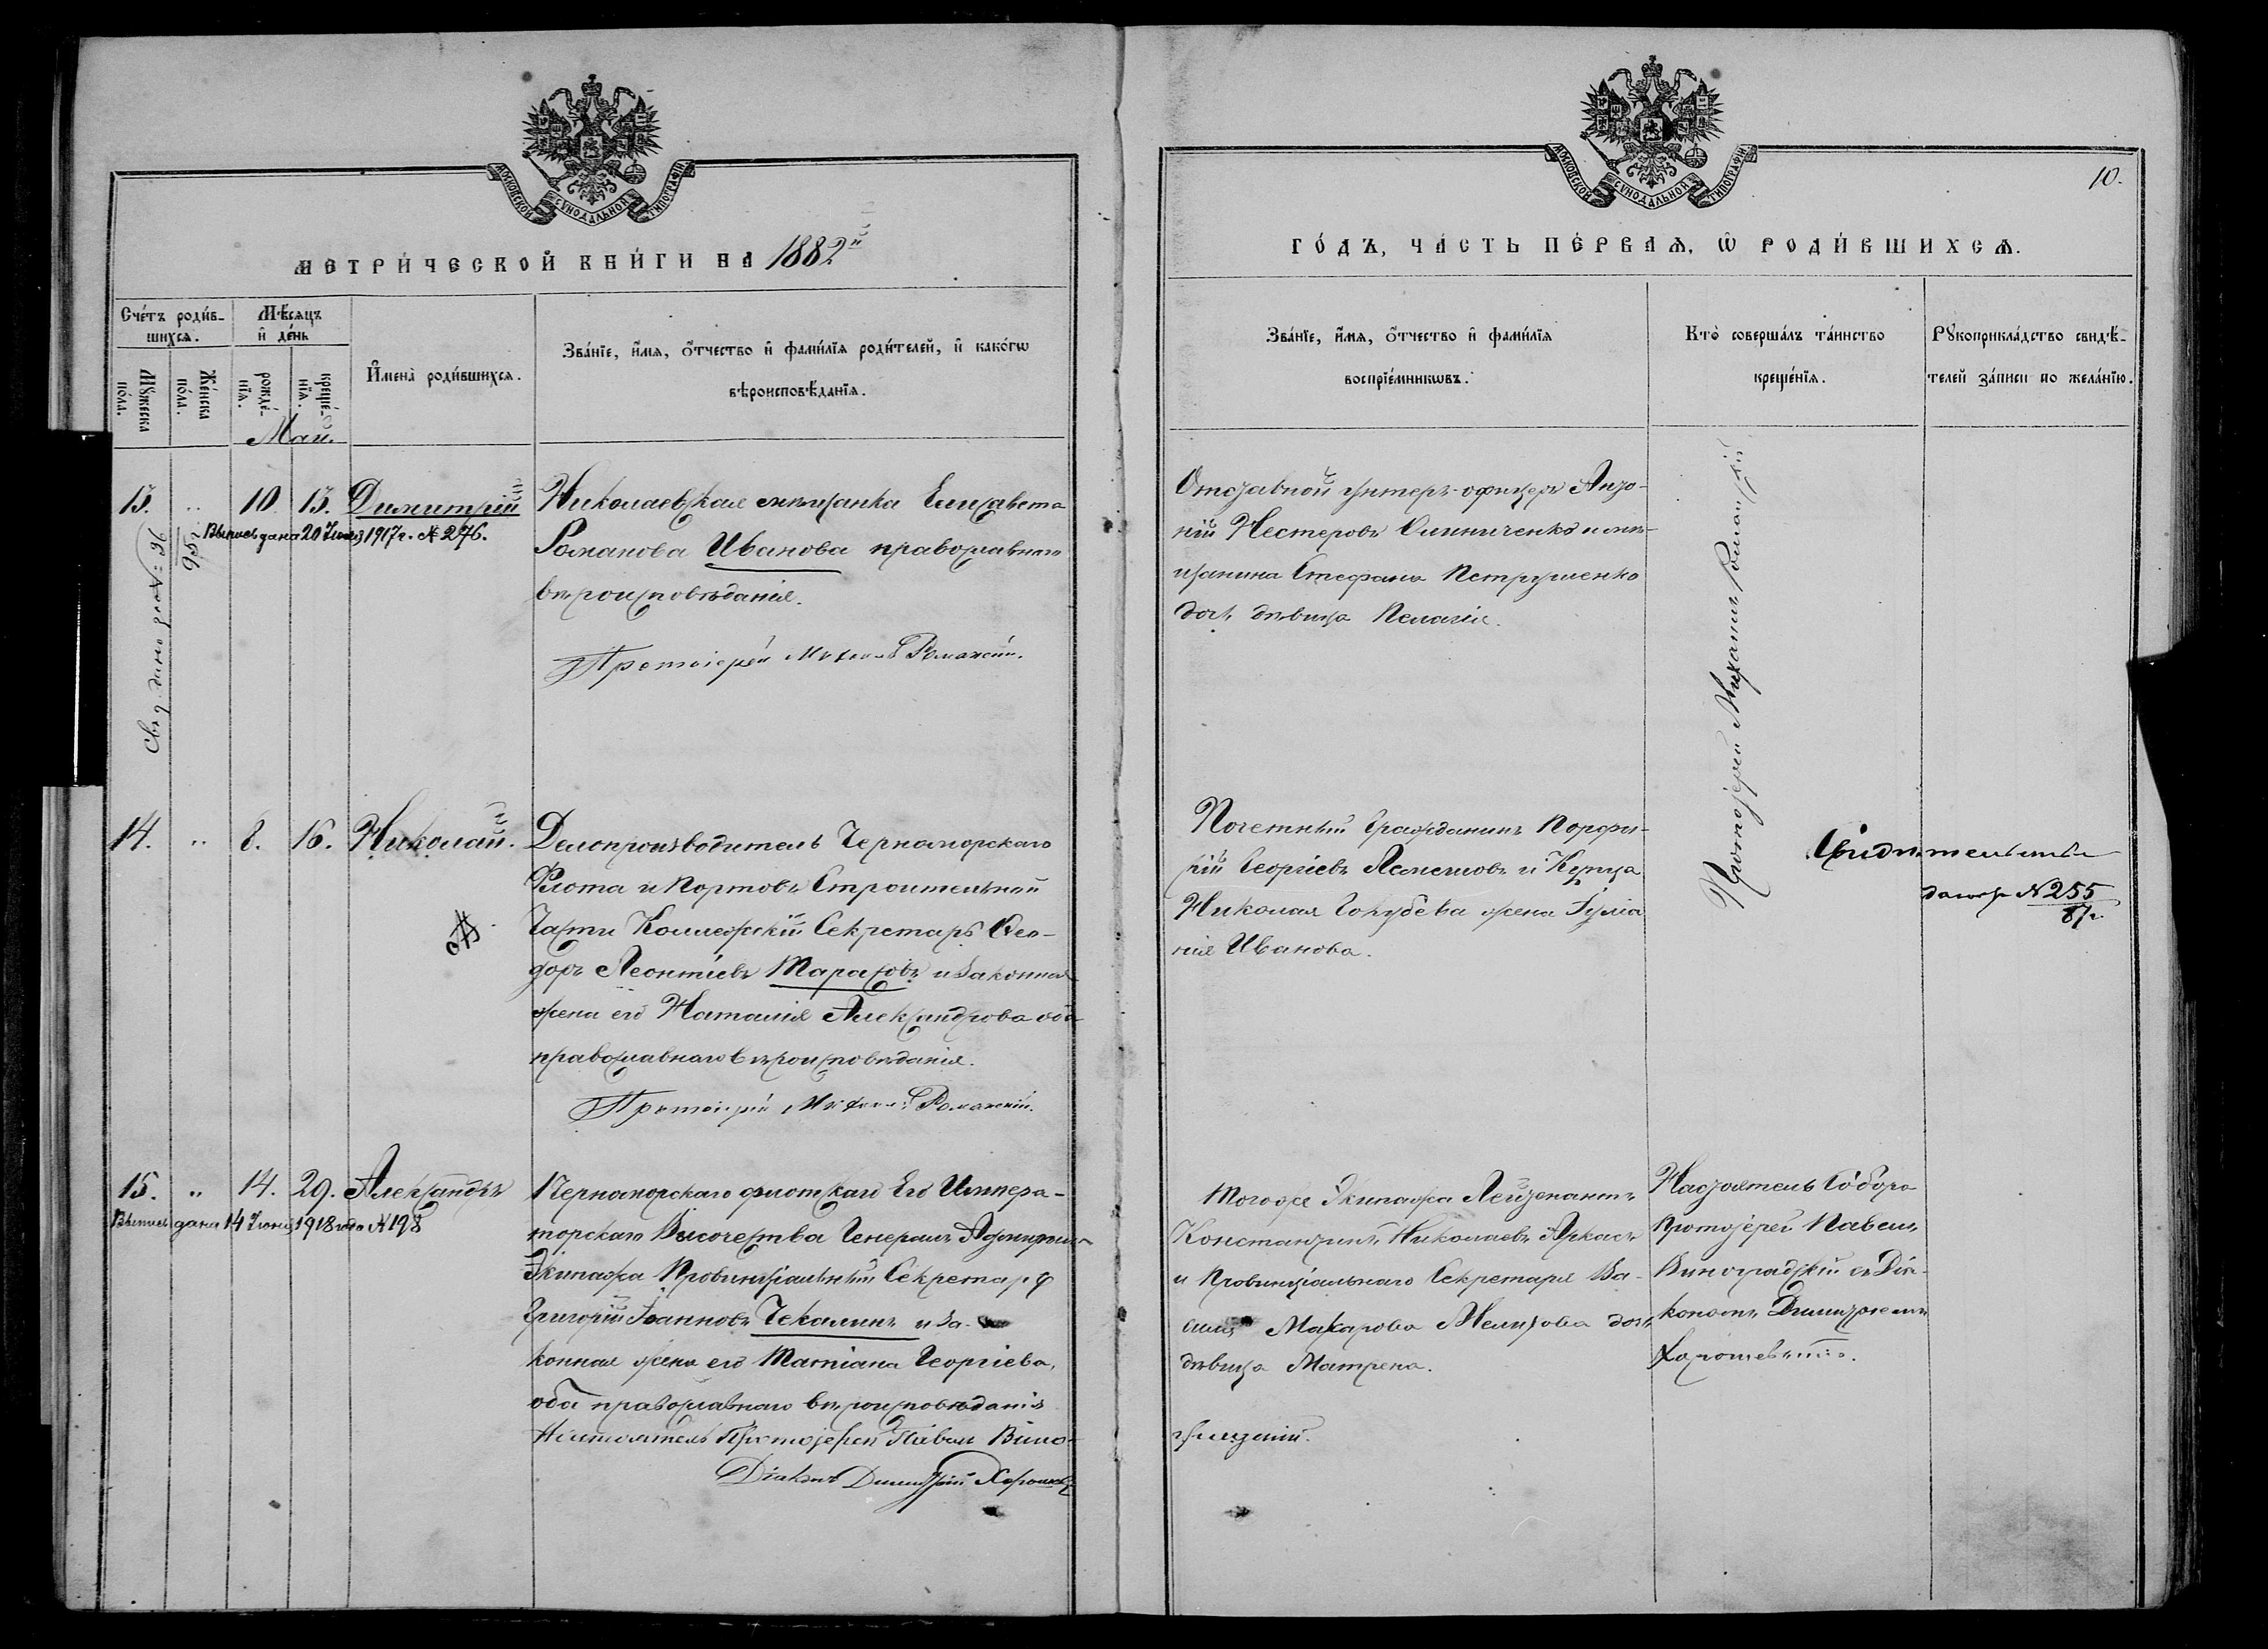 МОСКОВСКОЙ СУНОДАЛЬНОЙ ТИПОГРАФІИ
МЕТРИЧЕСКОЙ КНИГИ НА 1882й
Счетъ родив-
шихся.
Мѣсяцъ
и день
Мужеска пола.
Женска пола.
рожде-
нія.
креще-
нія.
Имена родившихся.
Званіе, имя, отчество и фамилія родителей, и какогω
вѣроисповѣданія.
Май.
13. " 10 13. Димитрій
Выпись дана 20 Іюня 1917 г. № 276.
Николаевская мѣщанка Елисавета
Романова Иванова православнаго
вѣроисповѣданія.
Протоіерей Михаилъ Романскій.
14. " 8. 16. Николай.
Делопроизводитель Черноморскаго
Флота и Портовъ Строительной
Части Коллежскій Секретарь Ѳео-
доръ Леонтіевъ Тарасовъ и законная
жена его Наталія Александрова оба
православнаго вѣроисповѣданія.
Протоіерей Михаилъ Романскій.
15. " 14. 29. Александръ
Выпись дана 14 Іюня 1918 года № 198
Черноморскаго флотскаго Его Импера-
торскаго Высочества Генералъ Адмирала
Экипажа Провинціальный Секретарь
Григорій Іоанновъ Чекалинъ и за-
конная жена его Татіана Георгіева,
оба православнаго вѣроисповѣданія
Настоятель Протоіерей Павелъ Вино-
Діаконъ Димитрій Хорошев
МОСКОВСКОЙ СУНОДАЛЬНОЙ ТИПОГРАФІИ
10.
ГОДЪ, ЧАСТЬ ПЕРВАЯ, Ѡ РОДИВШИХСЯ.
Званіе, имя, отчество и фамилія
воспріемникωвъ.
Кто совершалъ таинство
крещенія.
Рукоприкладство свидѣ-
телей записи по желанію.
Отставной унтеръ-офицеръ Анто-
ній Нестеровъ Олиниченко и мѣ-
щанина Стефана Петрушенко
дочь дѣвица Пелагія.
Протоіерей Михаилъ Романскій
Почетный Гражданинъ Порфи-
рій Георгіевъ и Купца
Николая Голубева жена Іулі
нія Иванова.
Свидѣтельство
дано № 255
87г.
Того же Экипажа Лейтенантъ
Константинъ Николаевъ Аркасъ
и Провинціальнаго Секретаря Ва-
силія Макарова дочь
дѣвица Матрена.
Настоятель Собора
Протоіерей Павелъ
Виноградскій съ Діа-
кономъ Димитріемъ